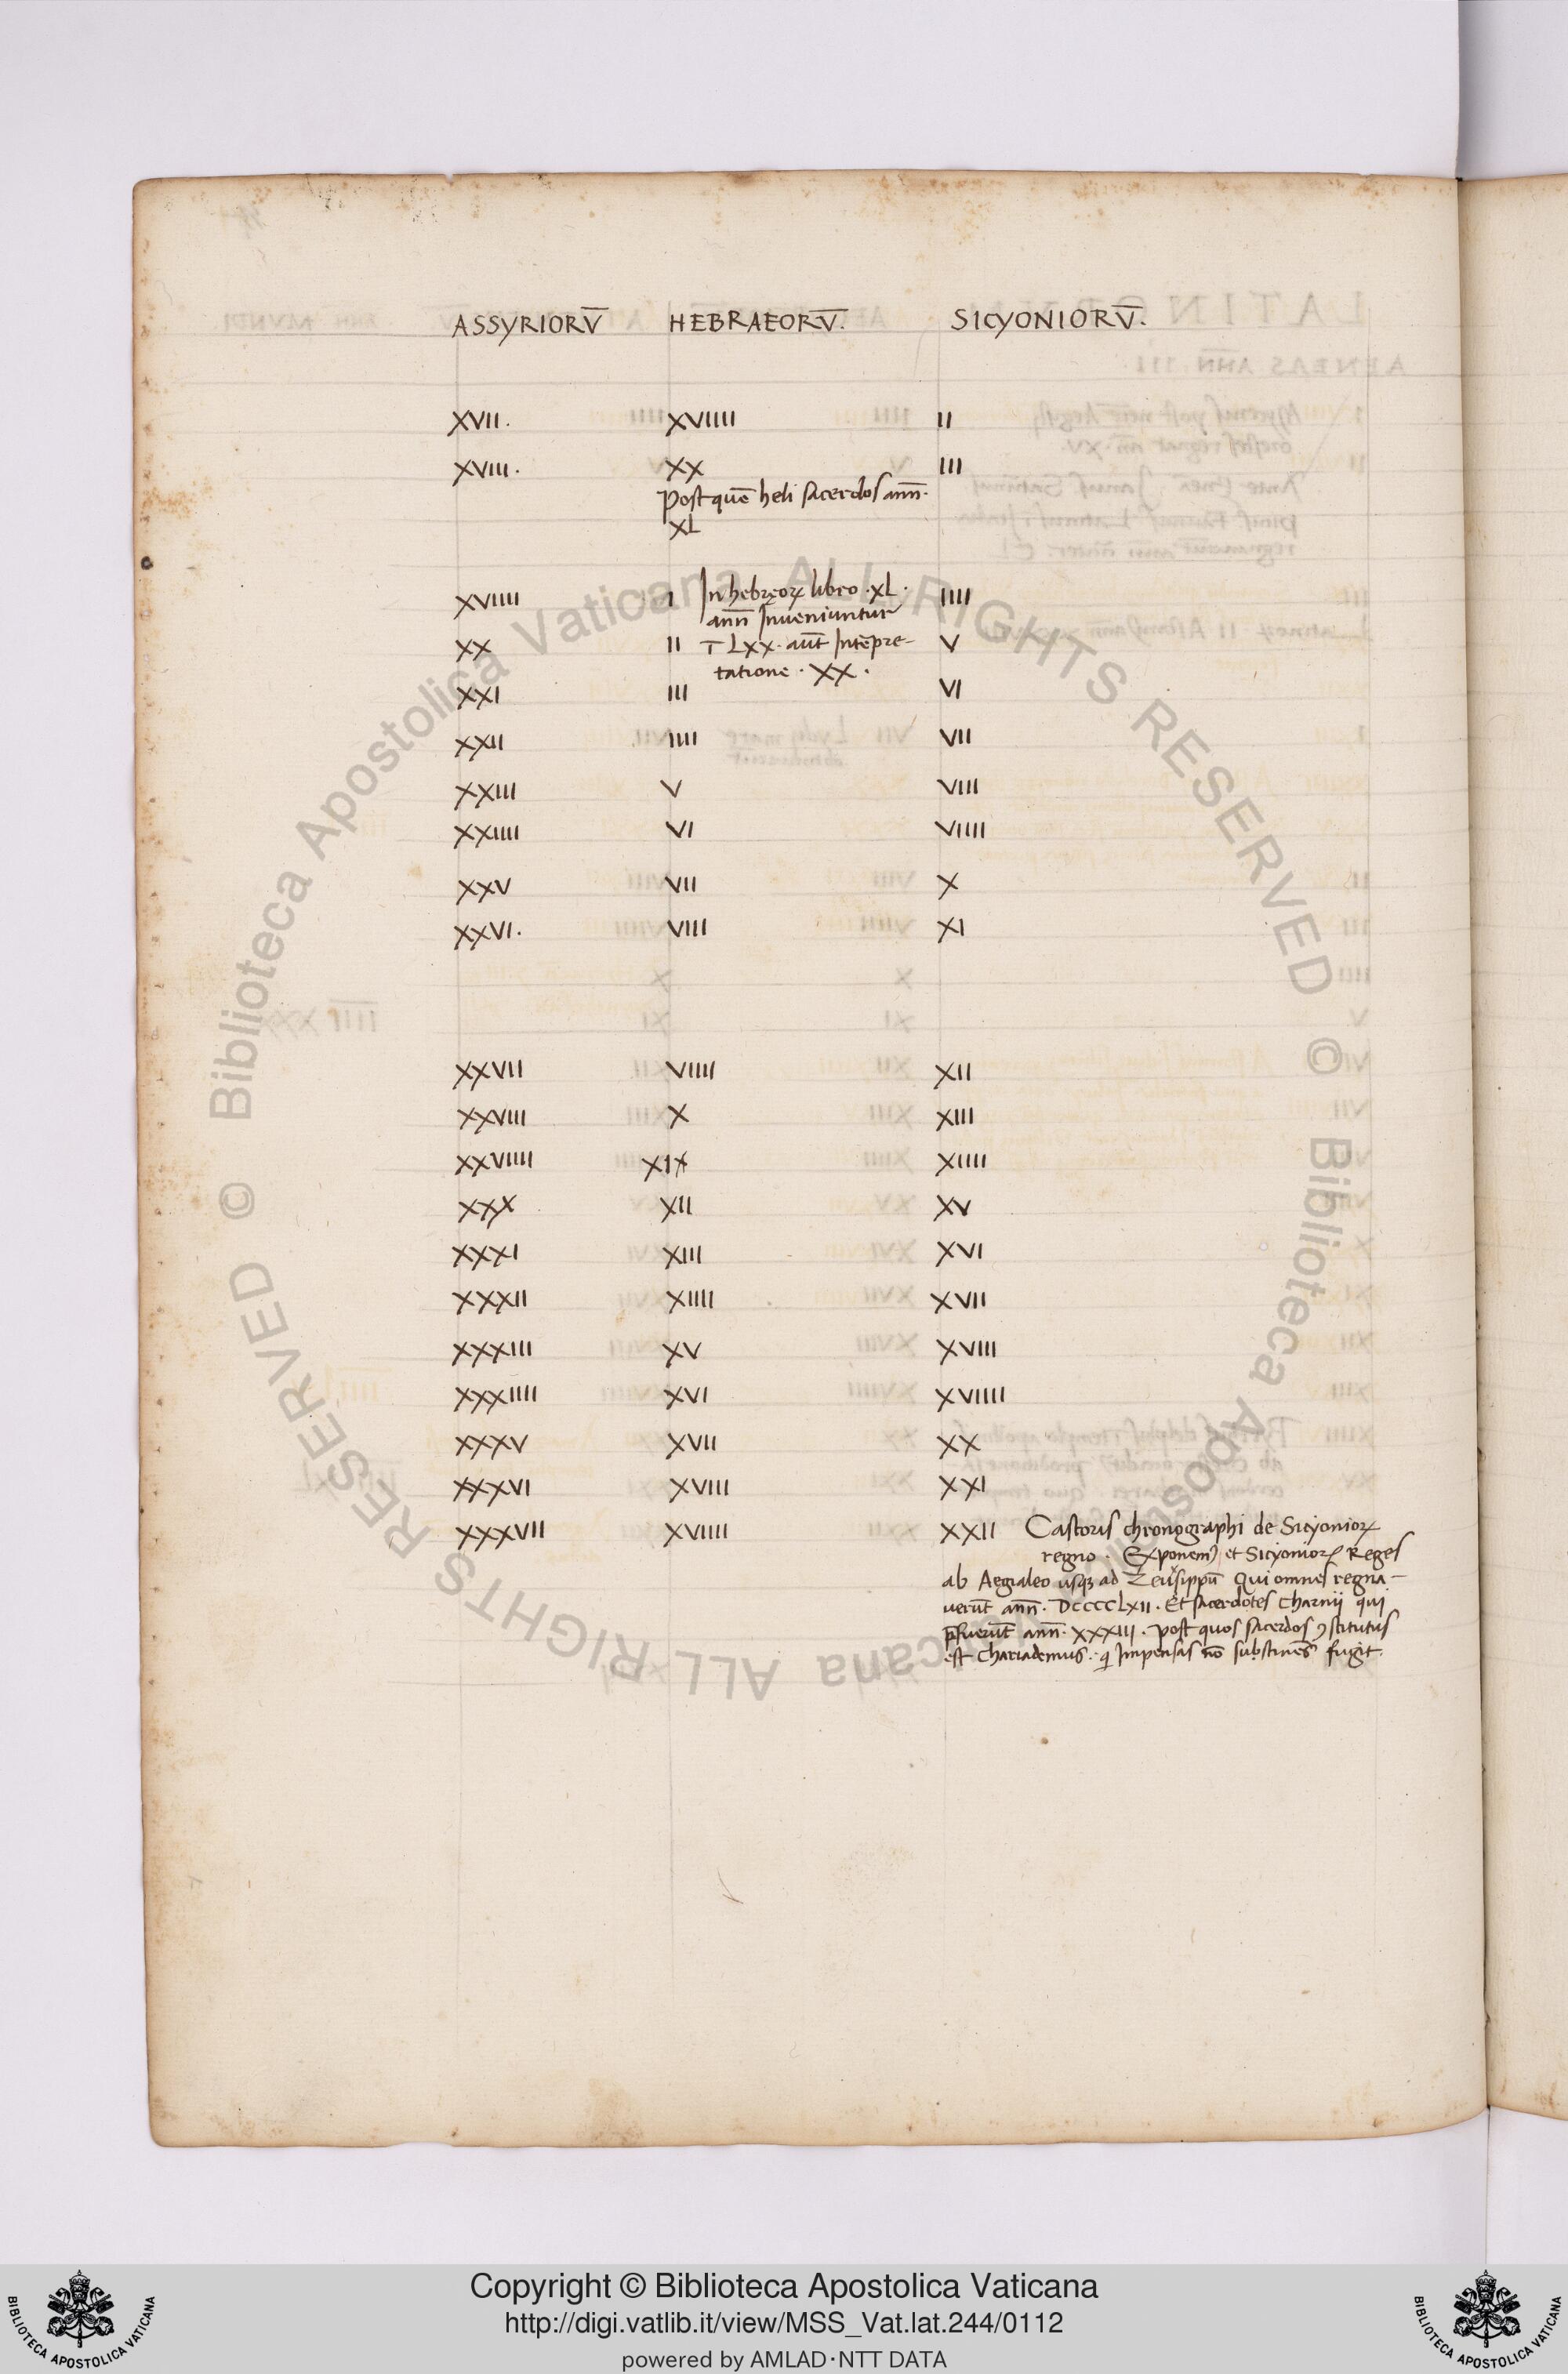 ASSYRIORV̅ HEBRAEORV̅. SICYONIORV̅.
XVII. XVIIII II
XVIII. XX III
Post quē heli sacerdos ann̄.
XL
XVIIII I In hebręoꝝ libro .XL. IIII
ann̄ Inveniuntur
XX II LXX. aut̄ Intēpre- V
tatione . XX .
XXI III VI
XXII IIII VII
XXIII V VIII
XXIIII VI VIIII
XXV VII X
XXVI. VIII XI
XXVII VIIII XII
XXVIII X XIII
XXVIIII XIIII
XXX XII XV
XXXI XIII XVI
XXXII XIIII XVII
XXXIII XV XVIII
XXXIIII XVI XVIIII
XXXV XVII XX
XXXVI XVIII XXI
XXXVII XVIIII XXII Castoris chronographi de Sicyonioꝝ
regno . Exponemꝰ et Sicyonioꝝ Reges
ab Aegialeo usqꝫ ad Zeusippū Qui omnes regna-
verūt ann̄. DCCCCLXII . Et sacerdotes Charnij qui
p̄fuerūt ann̄. XXXIII . post quos sacerdos ꝯstitutus
est Chariademus. q Impensas nō substinēs fugit.
© Biblioteca Apostolica Vaticana ALL RIGHTS RESERVED
© Biblioteca Apostolica Vaticana ALL RIGHTS RESERVED
Copyright © Biblioteca Apostolica Vaticana
http://digi.vatlib.it/view/MSS_Vat.lat.244/0112
powered by AMLAD·NTT DATA
BIBLIOTECA APOSTOLICA VATICANA
BIBLIOTECA APOSTOLICA VATICANA